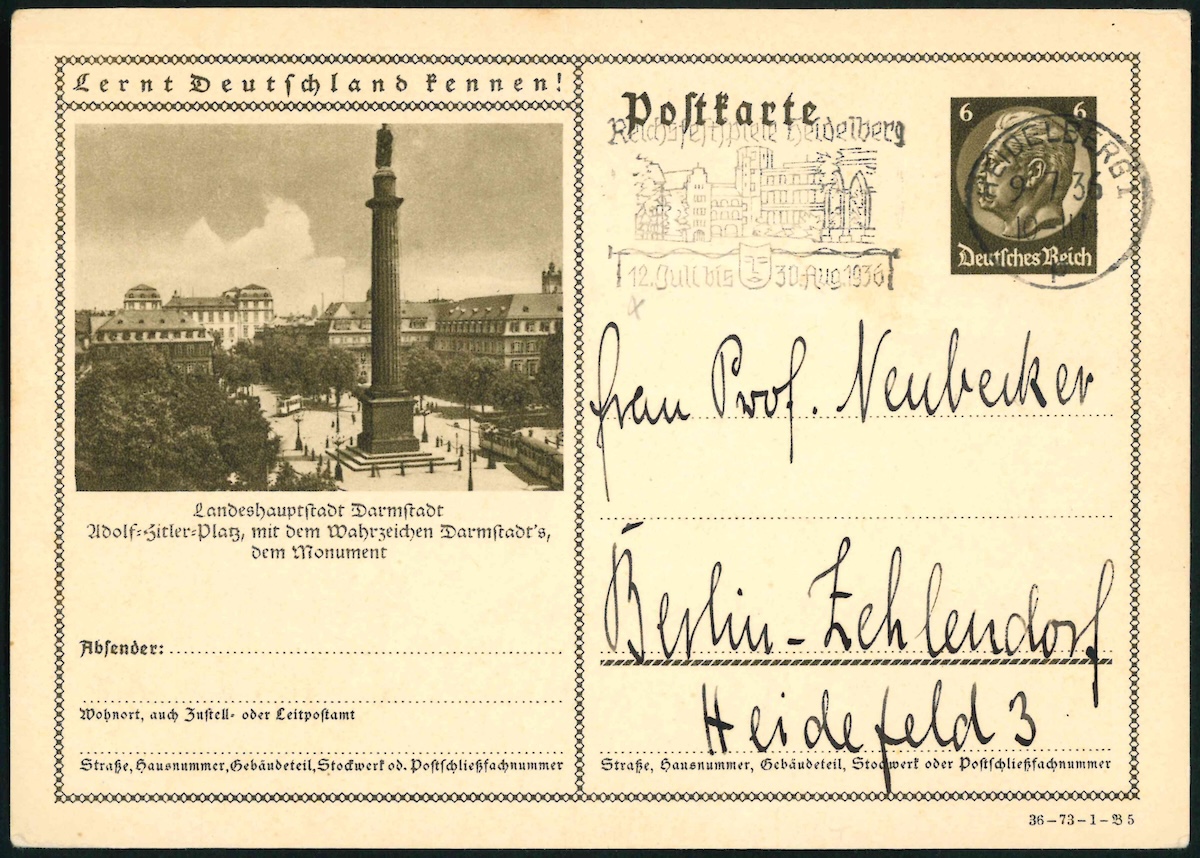 Lernt Deutschland kennen!
Landeshauptstadt Darmstadt
Adolf-Hitler-Platz, mit dem Wahrzeichen Darmstadt's,
dem Monument
Absender:
Wohnort, auch Zustell- oder Leitpostamt
Straße, Hausnummer, Gebäudeteil, Stockwerk od. Postschließfachnummer
Postkarte
Reichsfestspiele Heidelberg
12. Juli bis 30. Aug. 1936
6 6
Deutsches Reich
HEIDELBERG 1
9. 7. 36
10-11
p
Frau Prof. Neubecker
Berlin-Zehlendorf
Heidefeld 3
Straße, Hausnummer, Gebäudeteil, Stockwerk oder Postschließfachnummer
36-73-1-B 5